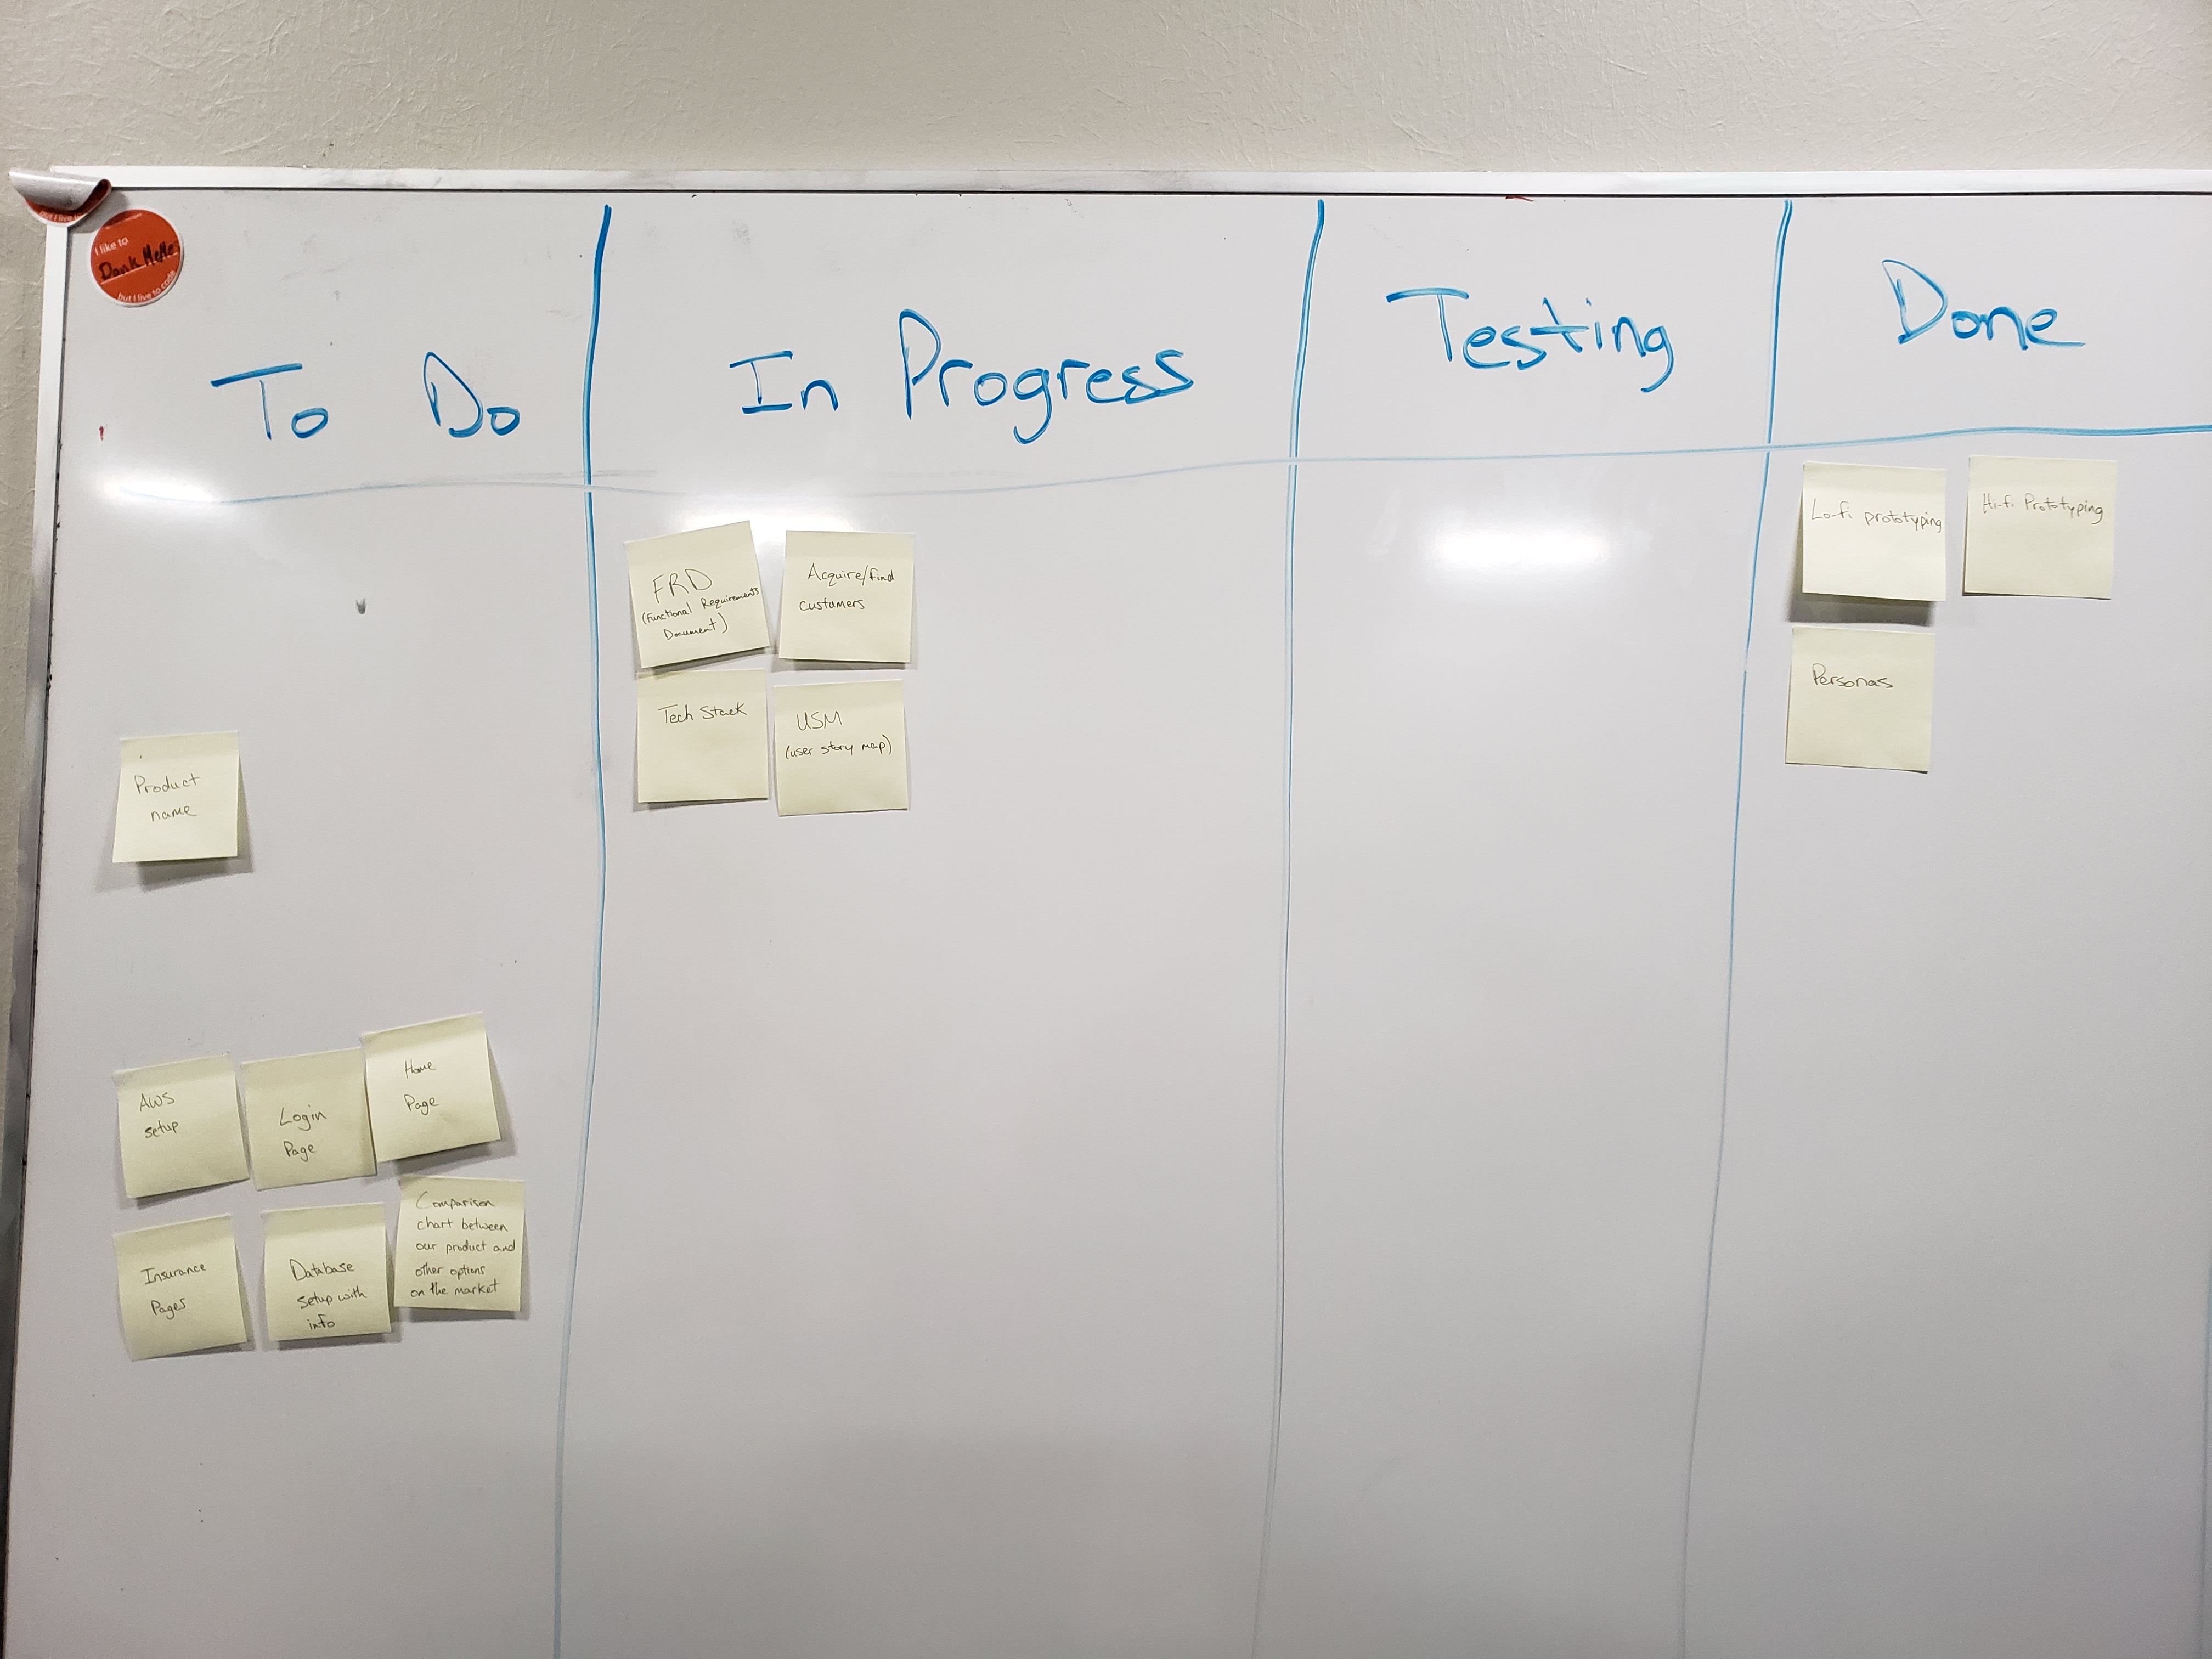 but I live to
I like to
Dank MeMe
but I live to code
To Do
In Progress
Testing
Done
Product
name
AWS
setup
Login
Page
Home
Page
Insurance
Pages
Database
setup with
info
Comparison
chart between
our product and
other options
on the market
FRD
(Functional Requirements
Document)
Acquire/find
customers
Tech Stack
USM
(user story map)
Lo-fi prototyping
Hi-fi Prototyping
Personas